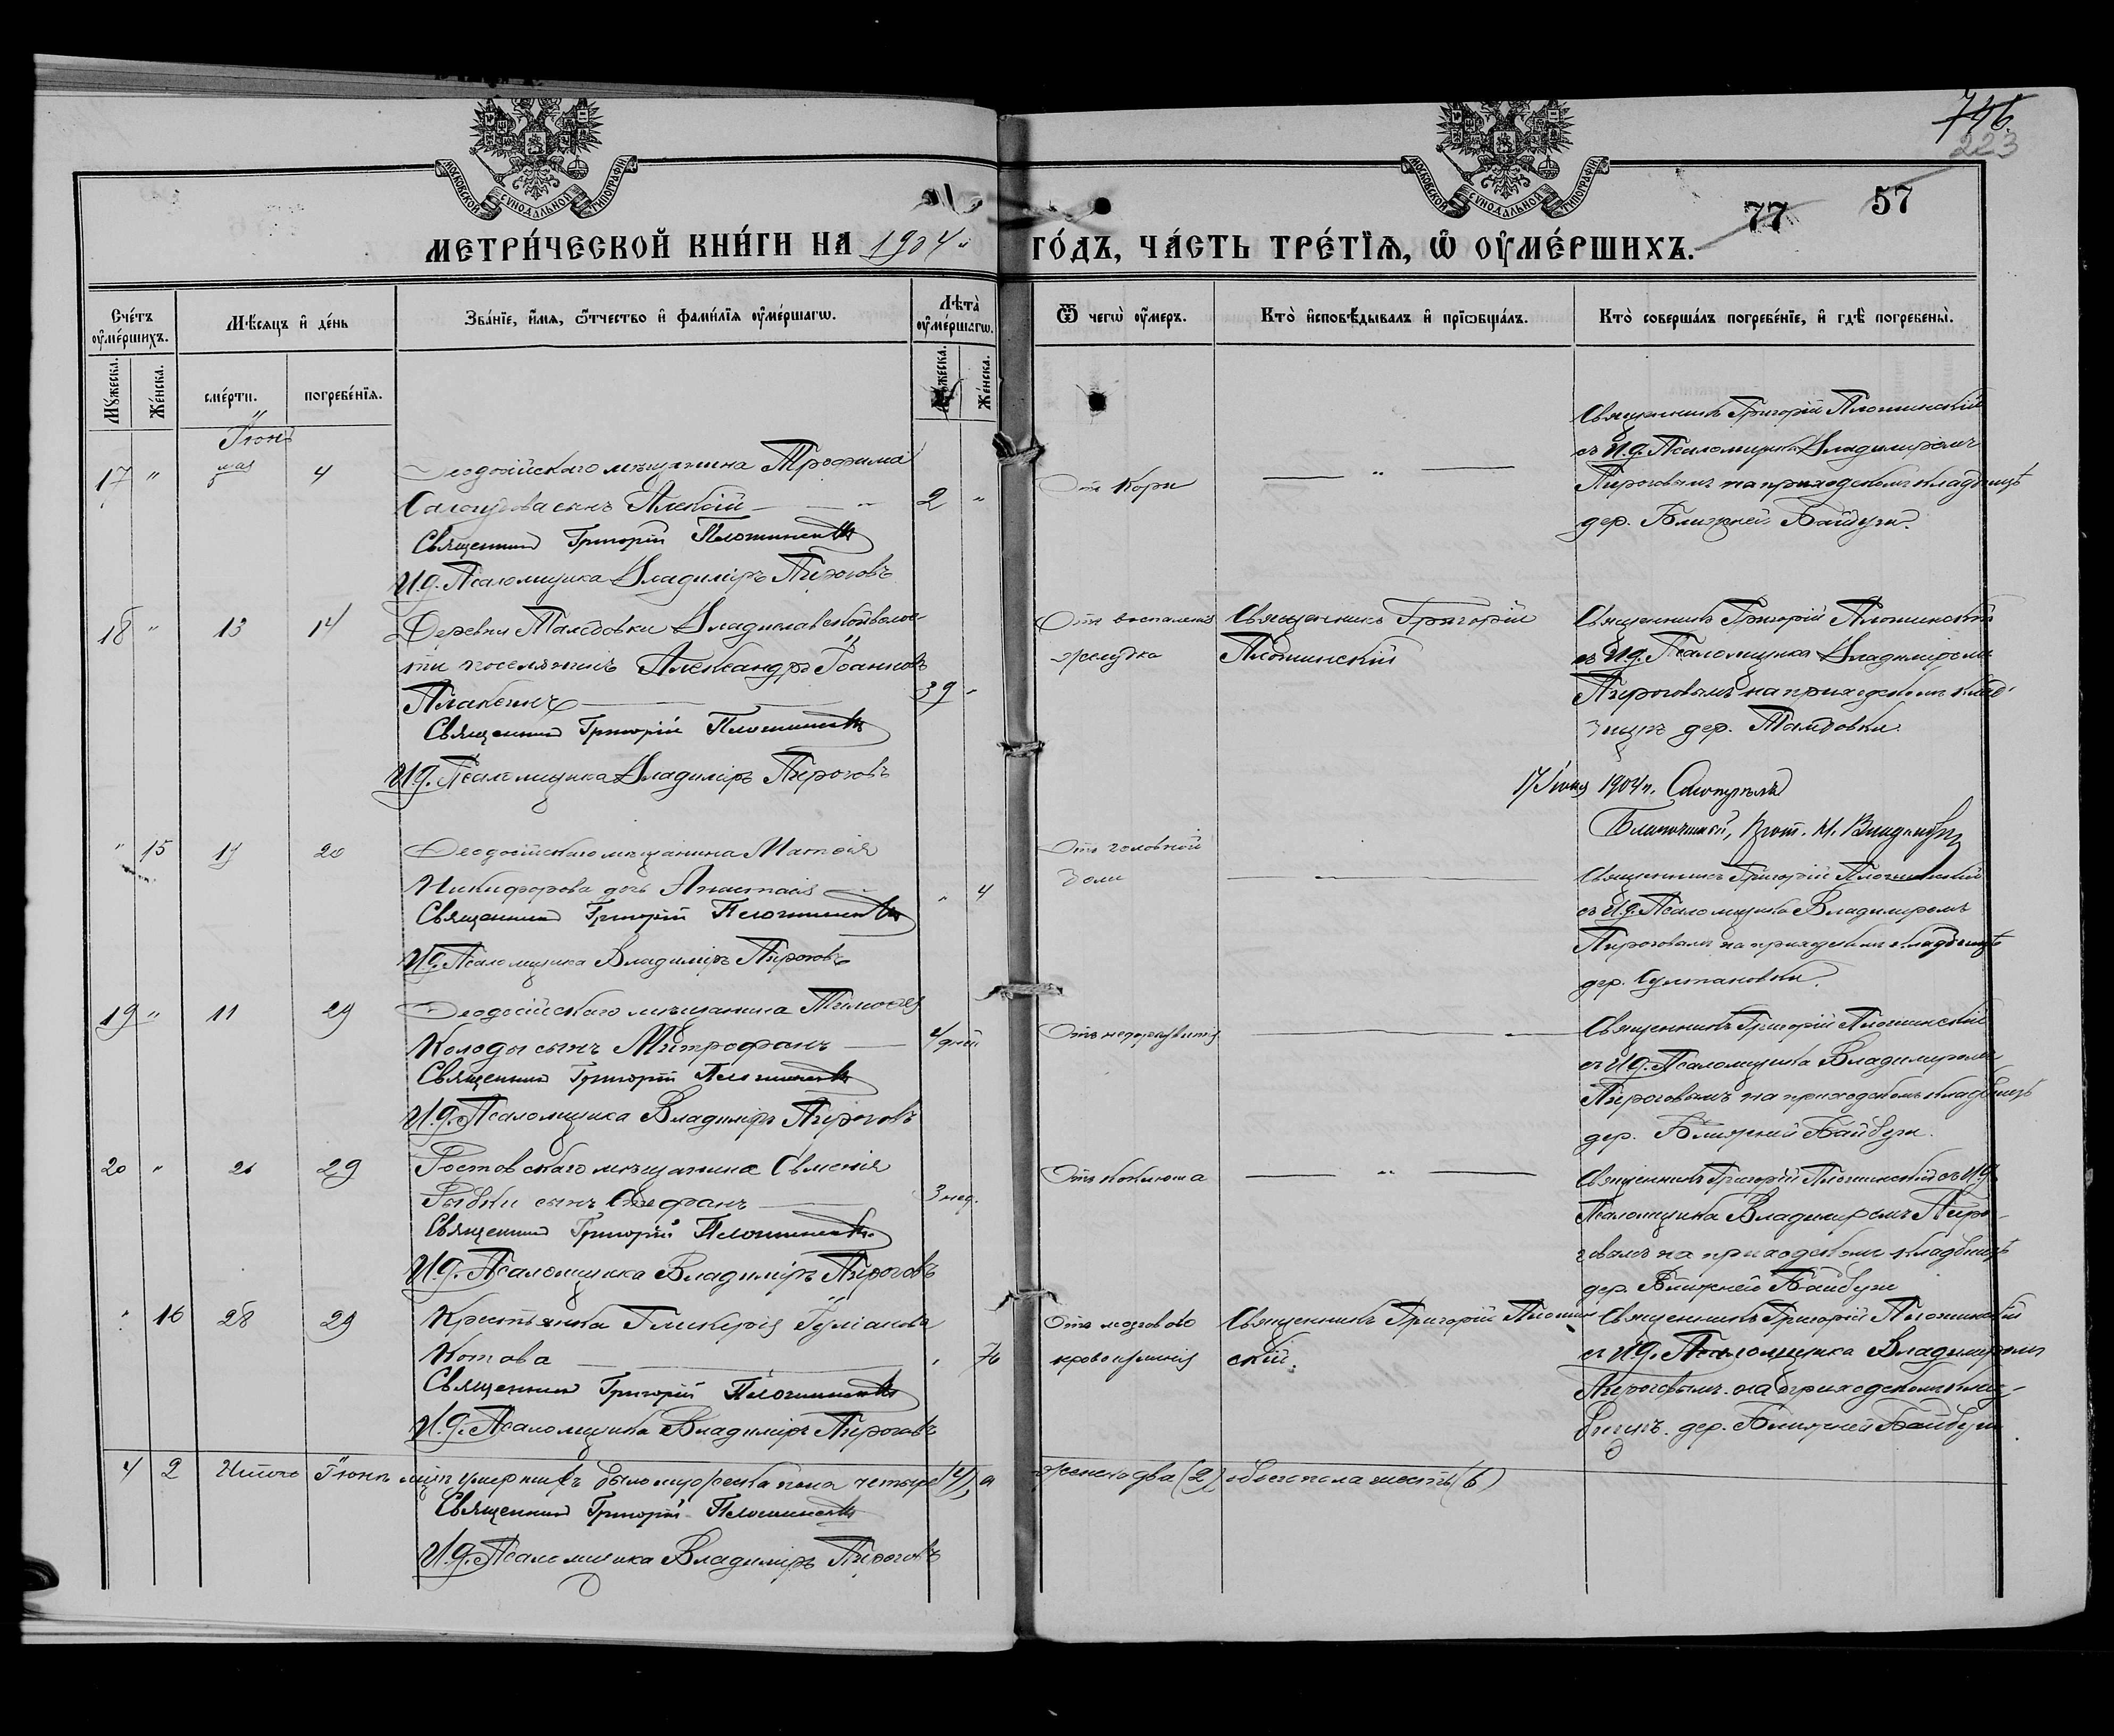 746.
223
МОСКОВСКОЙ СѴНОДАЛЬНОЙ ТИПОГРАФІИ
МОСКОВСКОЙ СѴНОДАЛЬНОЙ ТИПОГРАФІИ
77 57
МЕТРИ́ЧЕСКОЙ КНИ́ГИ НА 1904 ГО́ДЪ, ЧА́СТЬ ТРЕ́ТІѦ, Ѡ҆ ОУ҆МЕ́РШИХЪ.
Сче́тъ оу҆ме́ршихъ.
Мѣ́сѧцъ и҆ де́нь
Зва́нїе, и҆́мѧ, ѻ҆́тчество и҆ фами́лїѧ оу҆ме́ршагѡ.
Лѣта̀ оу҆ме́ршагѡ.
Ѿ чегѡ̀ оу҆́меръ.
Кто̀ и҆сповѣ́дывалъ и҆ прїѡбща́лъ.
Кто̀ соверша́лъ погребе́нїе, и҆ гдѣ̀ погребены̀.
Мꙋ́жеска.
Же́нска.
сме́рти.
погребе́нїѧ.
Мꙋ́жеска.
Же́нска.
Іюнь
17 " мая 4 Ѳеодосійскаго мѣщанина Трофима
сынъ Алексій 2 "
Священникъ Григорій Плотинскій
И.д. Псаломщика Владиміръ Пироговъ
Отъ Кори
"
Священникъ Григорій Плотинскій
съ И.д. Псаломщика Владиміромъ
Пироговымъ на приходскомъ кладбищѣ
дер. Ближней Байбуги.
18 " 13 14 Деревни Тамбовки Владиславской волос-
ти поселянинъ Александръ Іоанновъ
Плаксинъ 39 "
Священникъ Григорій Плотинскій
И.д. Псаломщика Владиміръ Пироговъ
Отъ воспаленія
желудка
Священникъ Григорій
Плотинскій
Священникъ Григорій Плотинскій
съ И.д. Псаломщика Владиміромъ
Пироговымъ на приходскомъ клад-
бищѣ дер. Тамбовки.
17 Іюня 1904 г.
Благочинный, Прот. И.
" 15 17 20 Ѳеодосійскаго мѣщанина Матѳія
Никифорова дочь Анастасія " 4
Священникъ Григорій Плотинскій
И.д. Псаломщика Владиміръ Пироговъ
Отъ головной
боли
Священникъ Григорій Плотинскій
съ И.д. Псаломщика Владиміромъ
Пироговымъ на приходскомъ кладбищѣ
дер. Султановки.
19 " 11 29 Ѳеодосійскаго мѣщанина Тимоѳея
Колоды сынъ Митрофанъ 4 дней
Священникъ Григорій Плотинскій
И.д. Псаломщика Владиміръ Пироговъ
Отъ недоразвитія
Священникъ Григорій Плотинскій
съ И.д. Псаломщика Владиміромъ
Пироговымъ на приходскомъ кладбищѣ
дер. Ближней Байбуги.
20 " 26 29 Ростовскаго мѣщанина Евменія
Рыбки сынъ Стефанъ 3 нед.
Священникъ Григорій Плотинскій
И.д. Псаломщика Владиміръ Пироговъ
Отъ коклюша
"
Священникъ Григорій Плотинскій съ И.д.
Псаломщика Владиміромъ Пиро-
говымъ на приходскомъ кладбищѣ
дер. Ближней Байбуги
" 16 28 29 Крестьянка Гликерія Іуліанова
Котова " 76
Священникъ Григорій Плотинскій
И.д. Псаломщика Владиміръ Пироговъ
Отъ мозгового
Священникъ Григорій Плотин-
скій.
Священникъ Григорій Плотинскій
съ И.д. Псаломщика Владиміромъ
Пироговымъ на приходскомъ клад-
бищѣ дер. Ближней Байбуги
4 2 Итого Іюнѣ мцѣ умершихъ было мужеска пола четыре (4), а женска два (2) обоего пола шесть (6)
Священникъ Григорій Плотинскій
И.д. Псаломщика Владиміръ Пироговъ